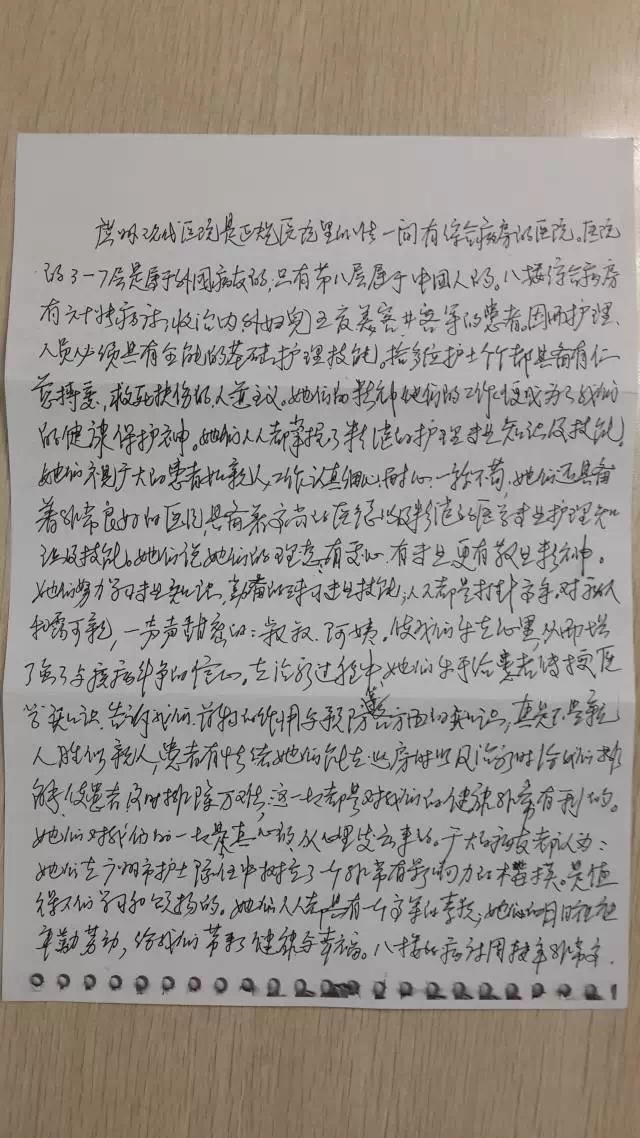 广州现代医院是正规医院里的唯一间有综合病房的医院。医院
的3-7层是属于外国病友的,只有第八层属于中国人的。八楼综合病房
有六十张病床,收治内外妇儿五皮美容等的患者。因而护理
人员必须具有全能的基础护理技能。拾多位护士个个都具备有仁
慈博爱,救死扶伤的人道主义。她们的精神她们的工作便成为了我们
的健康保护神。她们人人都掌握了精湛的护理专业知识及技能。
她们不是广大的患者如亲人,工作认真细心、耐心、一丝不苟,她们还具备
着非常良好的医德,具备着高尚的医德以及精湛的医学专业护理知
识及技能。她们说她们的理想:有爱心、有专业更有敬业精神。
她们努力学习专业知识,勤奋的练习专业技能,人人都是打针高手。对病人
和蔼可亲,一声声甜密的:叔叔、阿姨。使我们乐在心里,从而增
强了与疾病斗争的信心。在治疗过程中她们乐于给患者传授医
学知识,告诉我们药物的作用与预防等方面的知识,真是不是亲
人胜似亲人,患者有情绪她们能在查房时以及治疗时给我们排
解,使患者及时排除万难,这一切都是对我们的健康非常有利的。
她们对我们的一切是真心的,从心里发出来的。广大的病友都认为:
她们在广州市护士队伍中树立了一个非常有影响力的楷模。是值
得人们学习和颂扬的。她们人人都具有一个高等的素质,她们的日日夜夜
辛勤劳动,给我们带来了健康与幸福。八楼的病床用技率非常高.